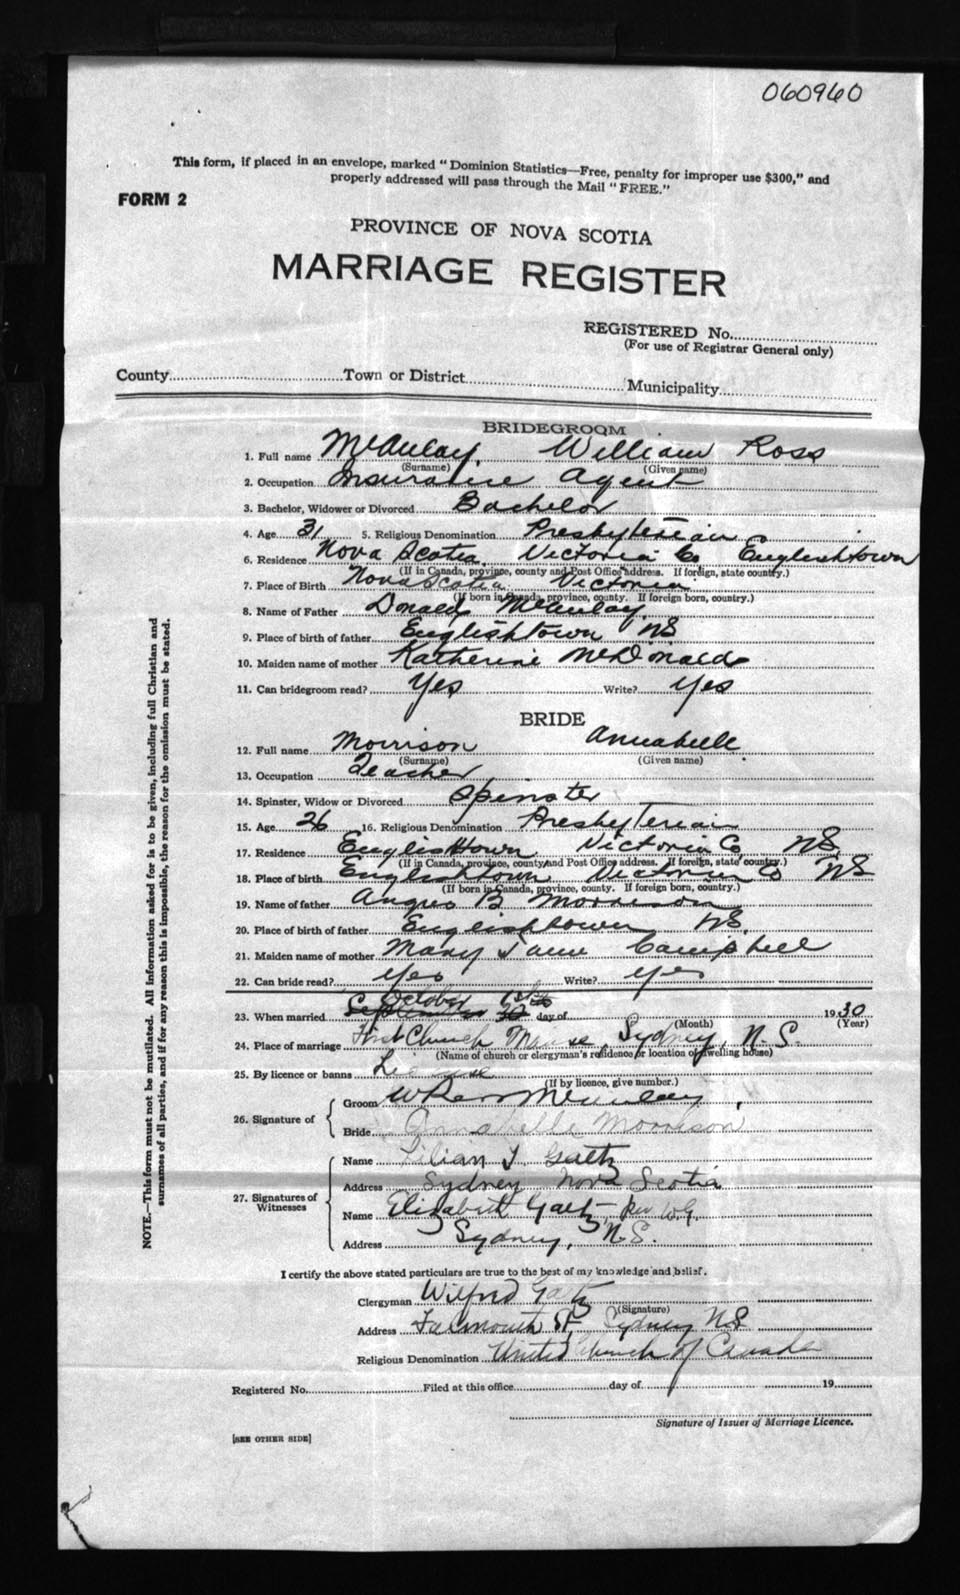 060960
This form, if placed in an envelope, marked "Dominion Statistics—Free, penalty for improper use $300," and
properly addressed will pass through the Mail "FREE."
FORM 2
PROVINCE OF NOVA SCOTIA
MARRIAGE REGISTER
REGISTERED No.
(For use of Registrar General only)
County Town or District Municipality
BRIDEGROOM
1. Full name McAulay, William Ross
(Surname) (Given name)
2. Occupation Insurance Agent
3. Bachelor, Widower or Divorced Bachelor
4. Age 31 5. Religious Denomination Presbyterian
6. Residence Nova Scotia Victoria Co Englishtown
(If in Canada, province, county and Post Office address. If foreign, state country.)
7. Place of Birth Nova Scotia Victoria
(If born in Canada, province, county. If foreign born, country.)
8. Name of Father Donald McAulay
9. Place of birth of father Englishtown NS
10. Maiden name of mother Katherine McDonald
11. Can bridegroom read? Yes Write? Yes
BRIDE
12. Full name Morrison Annabelle
(Surname) (Given name)
13. Occupation Teacher
14. Spinster, Widow or Divorced Spinster
15. Age 26 16. Religious Denomination Presbyterian
17. Residence Englishtown Victoria Co NS
(If in Canada, province, county and Post Office address. If foreign, state country.)
18. Place of birth Englishtown Victoria Co NS
(If born in Canada, province, county. If foreign born, country.)
19. Name of father Angus B Morrison
20. Place of birth of father Englishtown NS.
21. Maiden name of mother Mary Jane Campbell
22. Can bride read? Yes Write? Yes
October 1st
23. When married September 30 day of 1930
(Month) (Year)
24. Place of marriage First Church Manse, Sydney, N.S.
(Name of church or clergyman's residence or location of dwelling house)
25. By licence or banns License
(If by licence, give number.)
26. Signature of
Groom W Ross McAulay
Bride Annabelle Morrison
27. Signatures of Witnesses
Name Lilian I Gaetz
Address Sydney Nova Scotia
Name Elizabeth Gaetz
Address Sydney, N.S.
I certify the above stated particulars are true to the best of my knowledge and belief.
Clergyman Wilfred Gaetz
(Signature)
Address Falmouth St Sydney NS
Religious Denomination United Church of Canada
Registered No. Filed at this office day of 19
Signature of Issuer of Marriage Licence.
[SEE OTHER SIDE]
NOTE.—This form must not be mutilated. All information asked for is to be given, including full Christian and
surnames of all parties, and if for any reason this is impossible, the reason for the omission must be stated.